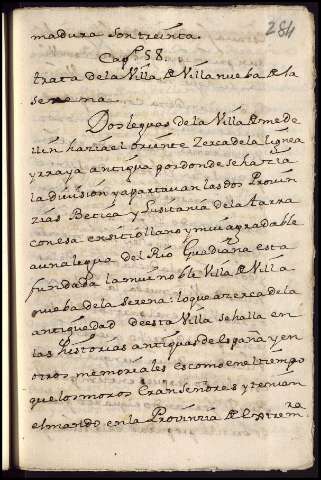 284
madura son treinta.
Capº 58.
trata de la Villa de Villa nueba de la
serena.
Dos leguas de la Villa de mede
llin hazia el oriente zerca de la linea
y rraya antigua por donde se hazia
la division y apartauan las dos Provin
zias Betica y Lusitania de la tarra
conesa en sitio llano y mui agradable
a una legua del Rio Guadiana esta
fundada la mui noble Villa de Villa
nueba de la Serena: lo que a zerca de la
antiguedad de esta Villa se halla en
las historias antiguas de españa y en
otros memoriales es como en el tiempo
que los moros eran señores y tenian
el mando en la Provinzia de Extremra